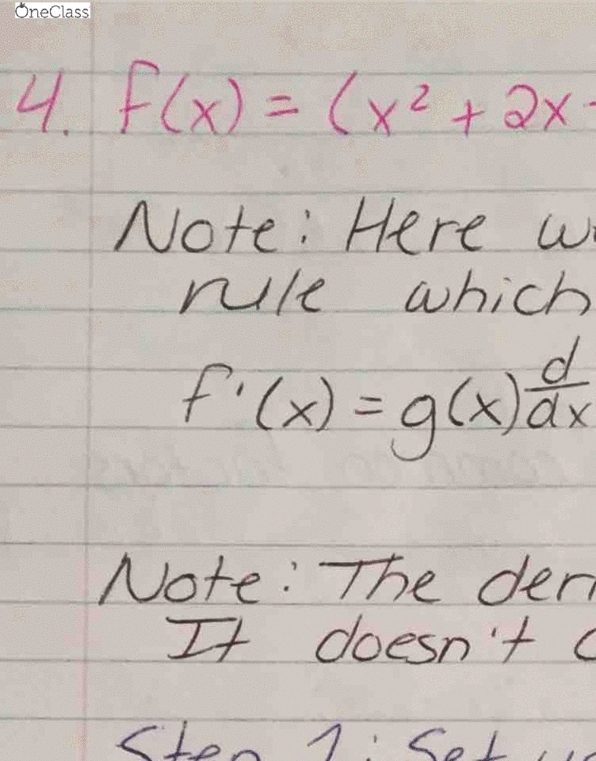 OneClass
4. f(x) = (x² + 2x
Note: Here
rule which
f'(x) = g(x) d/dx
Note: The
It doesn't
Step 1: Set